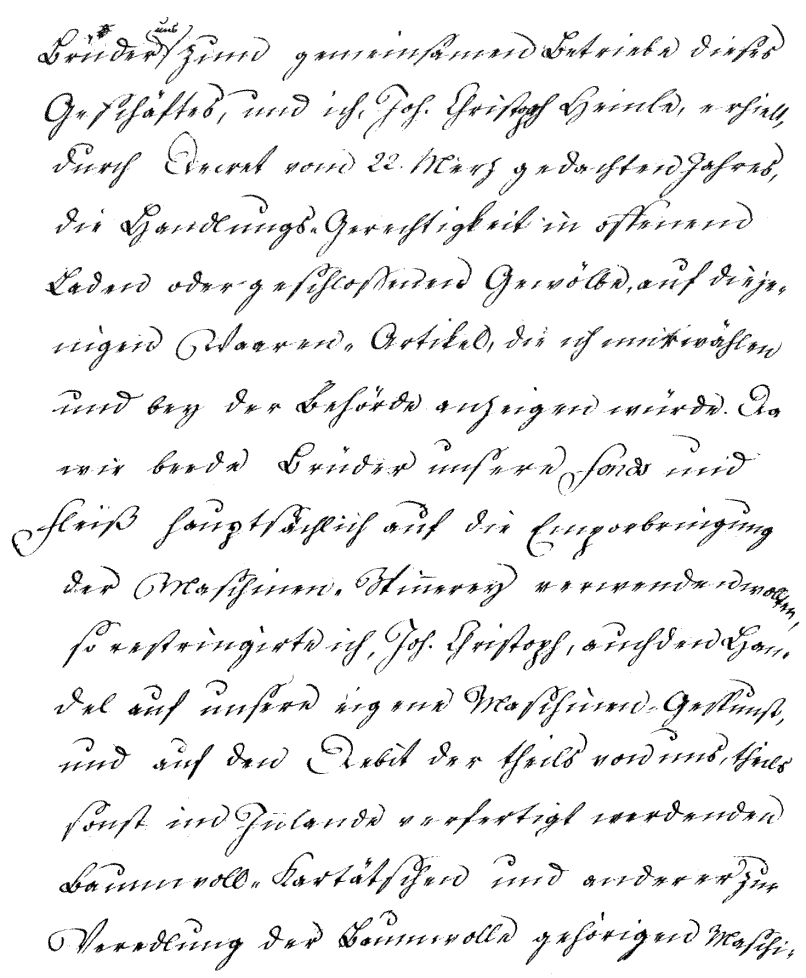 Brüder uns zum gemeinsamen Betriebe dieses
Geschäftes, und ich, Joh. Christoph Heinle, erhielt,
durch Decret vom 22. Merz gedachten Jahres,
die Handlungs-Gerechtigkeit in offenem
Laden oder geschlossenem Gewölbe, auf dieje-
nigen Waaren-Artikel, die ich mir wählen
und bey der Behörde anzeigen würde. Da
wir beede Brüder unsere Fonds und
Fleiß hauptsächlich auf die Emporbringung
der Maschinen-Spinnerey verwenden wollten,
so restringirte ich, Joh. Christoph, auch den Han-
del auf unsere eigene Maschinen-Gespunst,
und auf den Debit der theils von uns, theils
sonst im Inlande verfertigt werdenden
Baumwoll-Kartätschen und anderer zur
Veredlung der Baumwolle gehörigen Maschi-